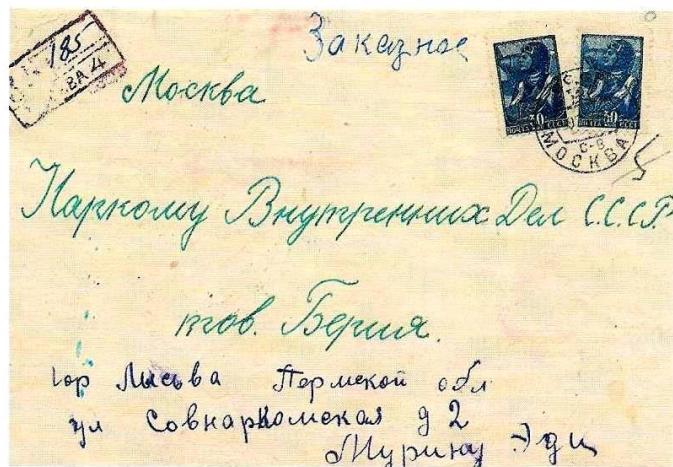 Заказное
185
ВА 4
Москва
30
ПОЧТА СССР
50
ПОЧТА СССР
МОСКВА
Наркому Внутренних Дел С.С.С.Р.
тов. Берия.
гор Лысьва Пермской обл
ул Совнаркомская д 2
Мурину Эди